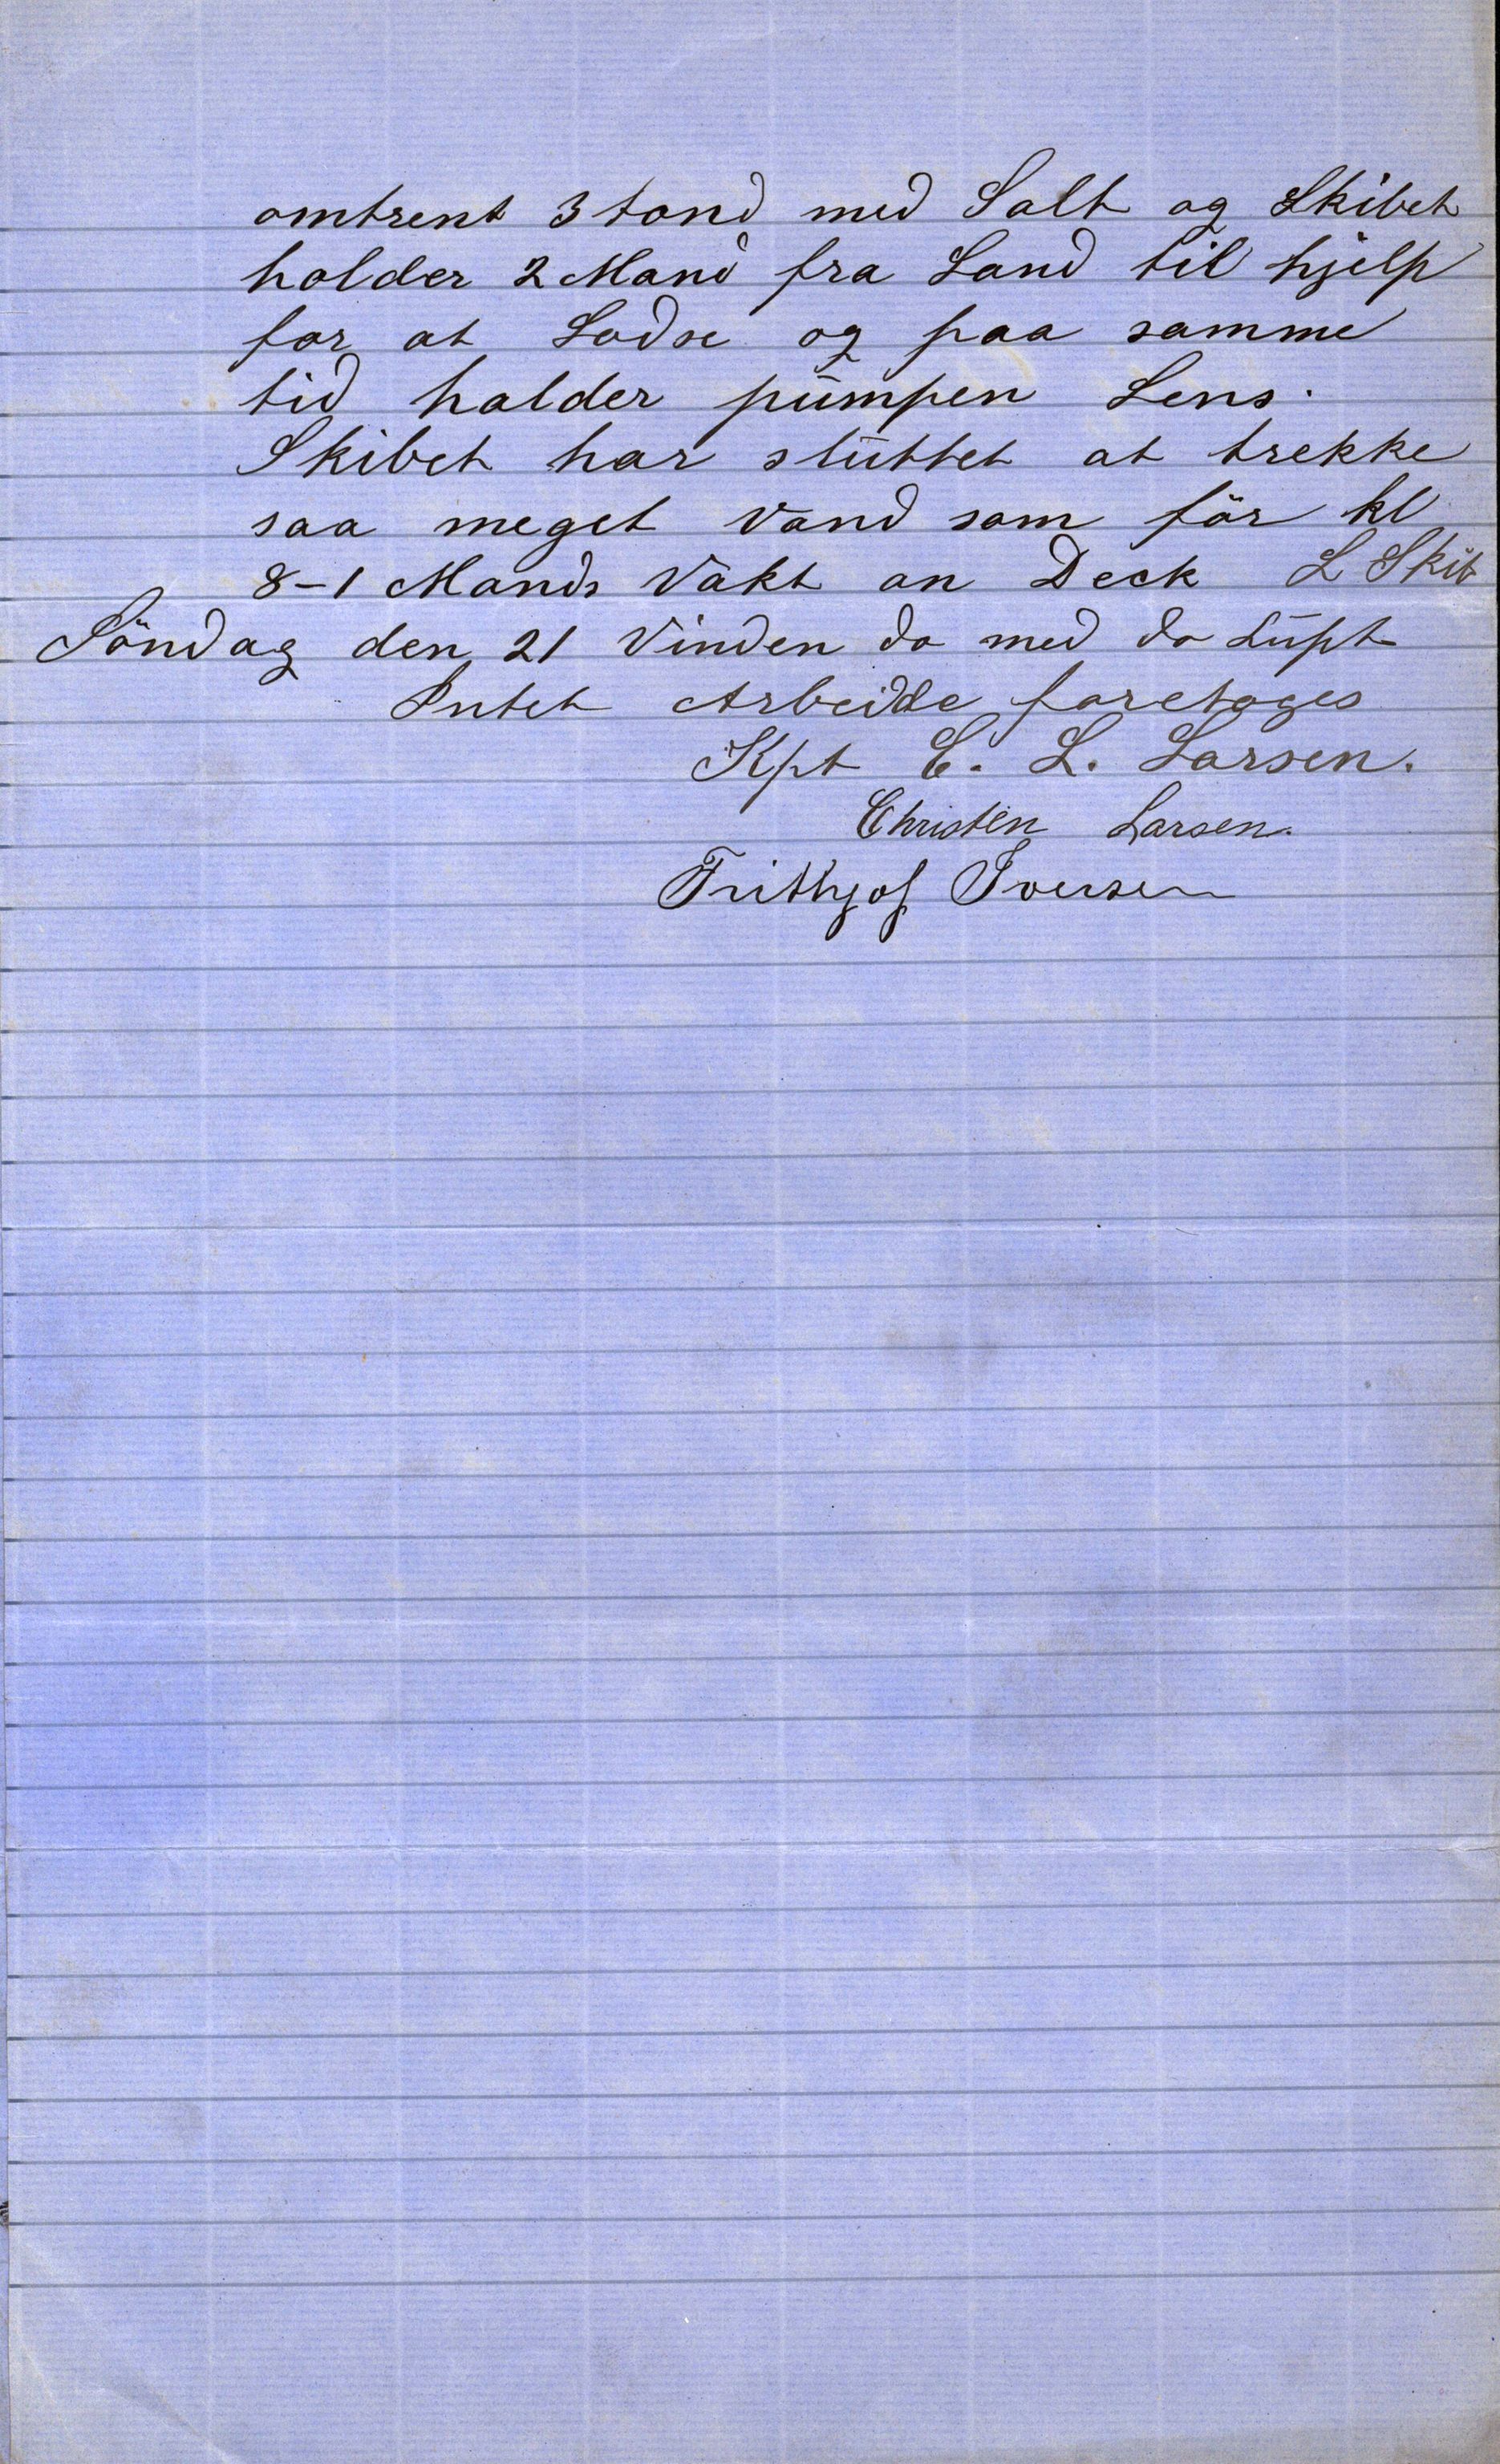 omtrent 3 tond med Salt og Skibet
holder 2 Mand fra Land til hjelp
for at Lodse og paa samme
tid halder pümpen Lens.
Skibet har slüttet at trekke
saa meget vand som för kl
8-1 Mands Vakt on Deck L Skib
Söndag den 21 Vinden do med do Lüft
Intet Arbeide foretoges
Kpt E. L. Larsen.
Christen Larsen.
Frithjof Iversen